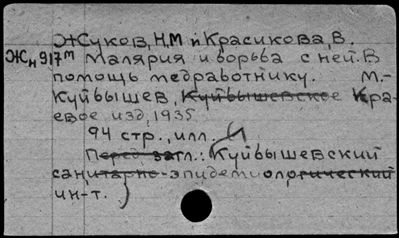 Жуков, Н.М и Красикова, В.
Жн917м Малярия и борьба с ней. В
помощь медработнику. М.-
Куйбышев, Куйбышевское Кра-
евое изд, 1935
94 стр., илл.
Перед загл.: Куйбышевский
санитарно-эпидемиологический
ин-т.